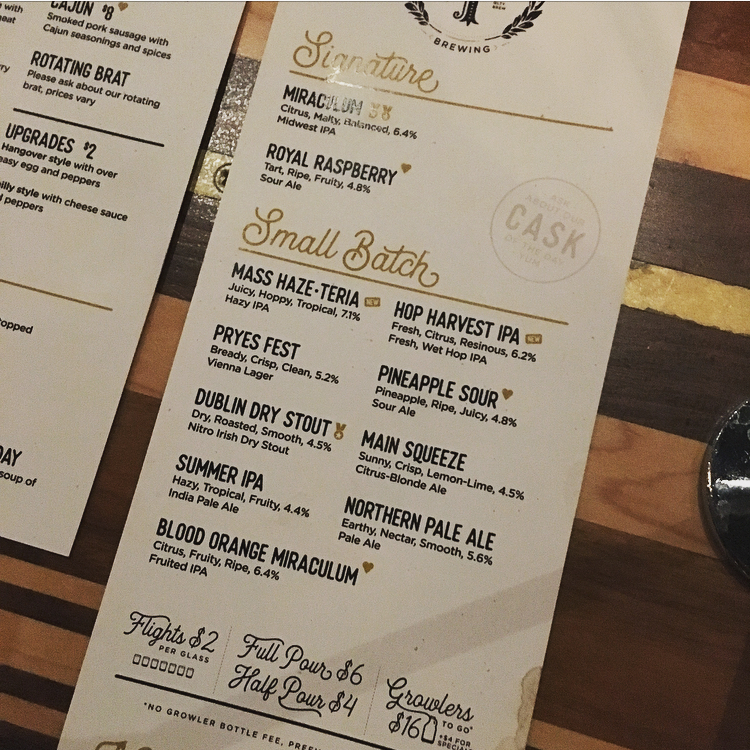 CAJUN $8
Smoked pork sausage with
Cajun seasonings and spices
ROTATING BRAT
Please ask about our rotating
brat, prices vary
UPGRADES $2
Hangover style with over
easy egg and peppers
style with cheese sauce
peppers
DAY
soup of
BREWING
Signature
MIRACULUM
Citrus, Malty, Balanced, 6.4%
Midwest IPA
ROYAL RASPBERRY
Tart, Ripe, Fruity, 4.8%
Sour Ale
ASK
ABOUT OUR
CASK
OF THE DAY
YUM
Small Batch
MASS HAZE•TERIA NEW
Juicy, Hoppy, Tropical, 7.1%
Hazy IPA
PRYES FEST
Bready, Crisp, Clean, 5.2%
Vienna Lager
DUBLIN DRY STOUT
Dry, Roasted, Smooth, 4.5%
Nitro Irish Dry Stout
SUMMER IPA
Hazy, Tropical, Fruity, 4.4%
India Pale Ale
BLOOD ORANGE MIRACULUM
Citrus, Fruity, Ripe, 6.4%
Fruited IPA
HOP HARVEST IPA NEW
Fresh, Citrus, Resinous, 6.2%
Fresh, Wet Hop IPA
PINEAPPLE SOUR
Pineapple, Ripe, Juicy, 4.8%
Sour Ale
MAIN SQUEEZE
Sunny, Crisp, Lemon-Lime, 4.5%
Citrus-Blonde Ale
NORTHERN PALE ALE
Earthy, Nectar, Smooth, 5.6%
Pale Ale
Flights $2
PER GLASS
Full Pour $6
Half Pour $4
Growlers
TO GO*
$16
+$4 FOR
*NO GROWLER BOTTLE FEE,